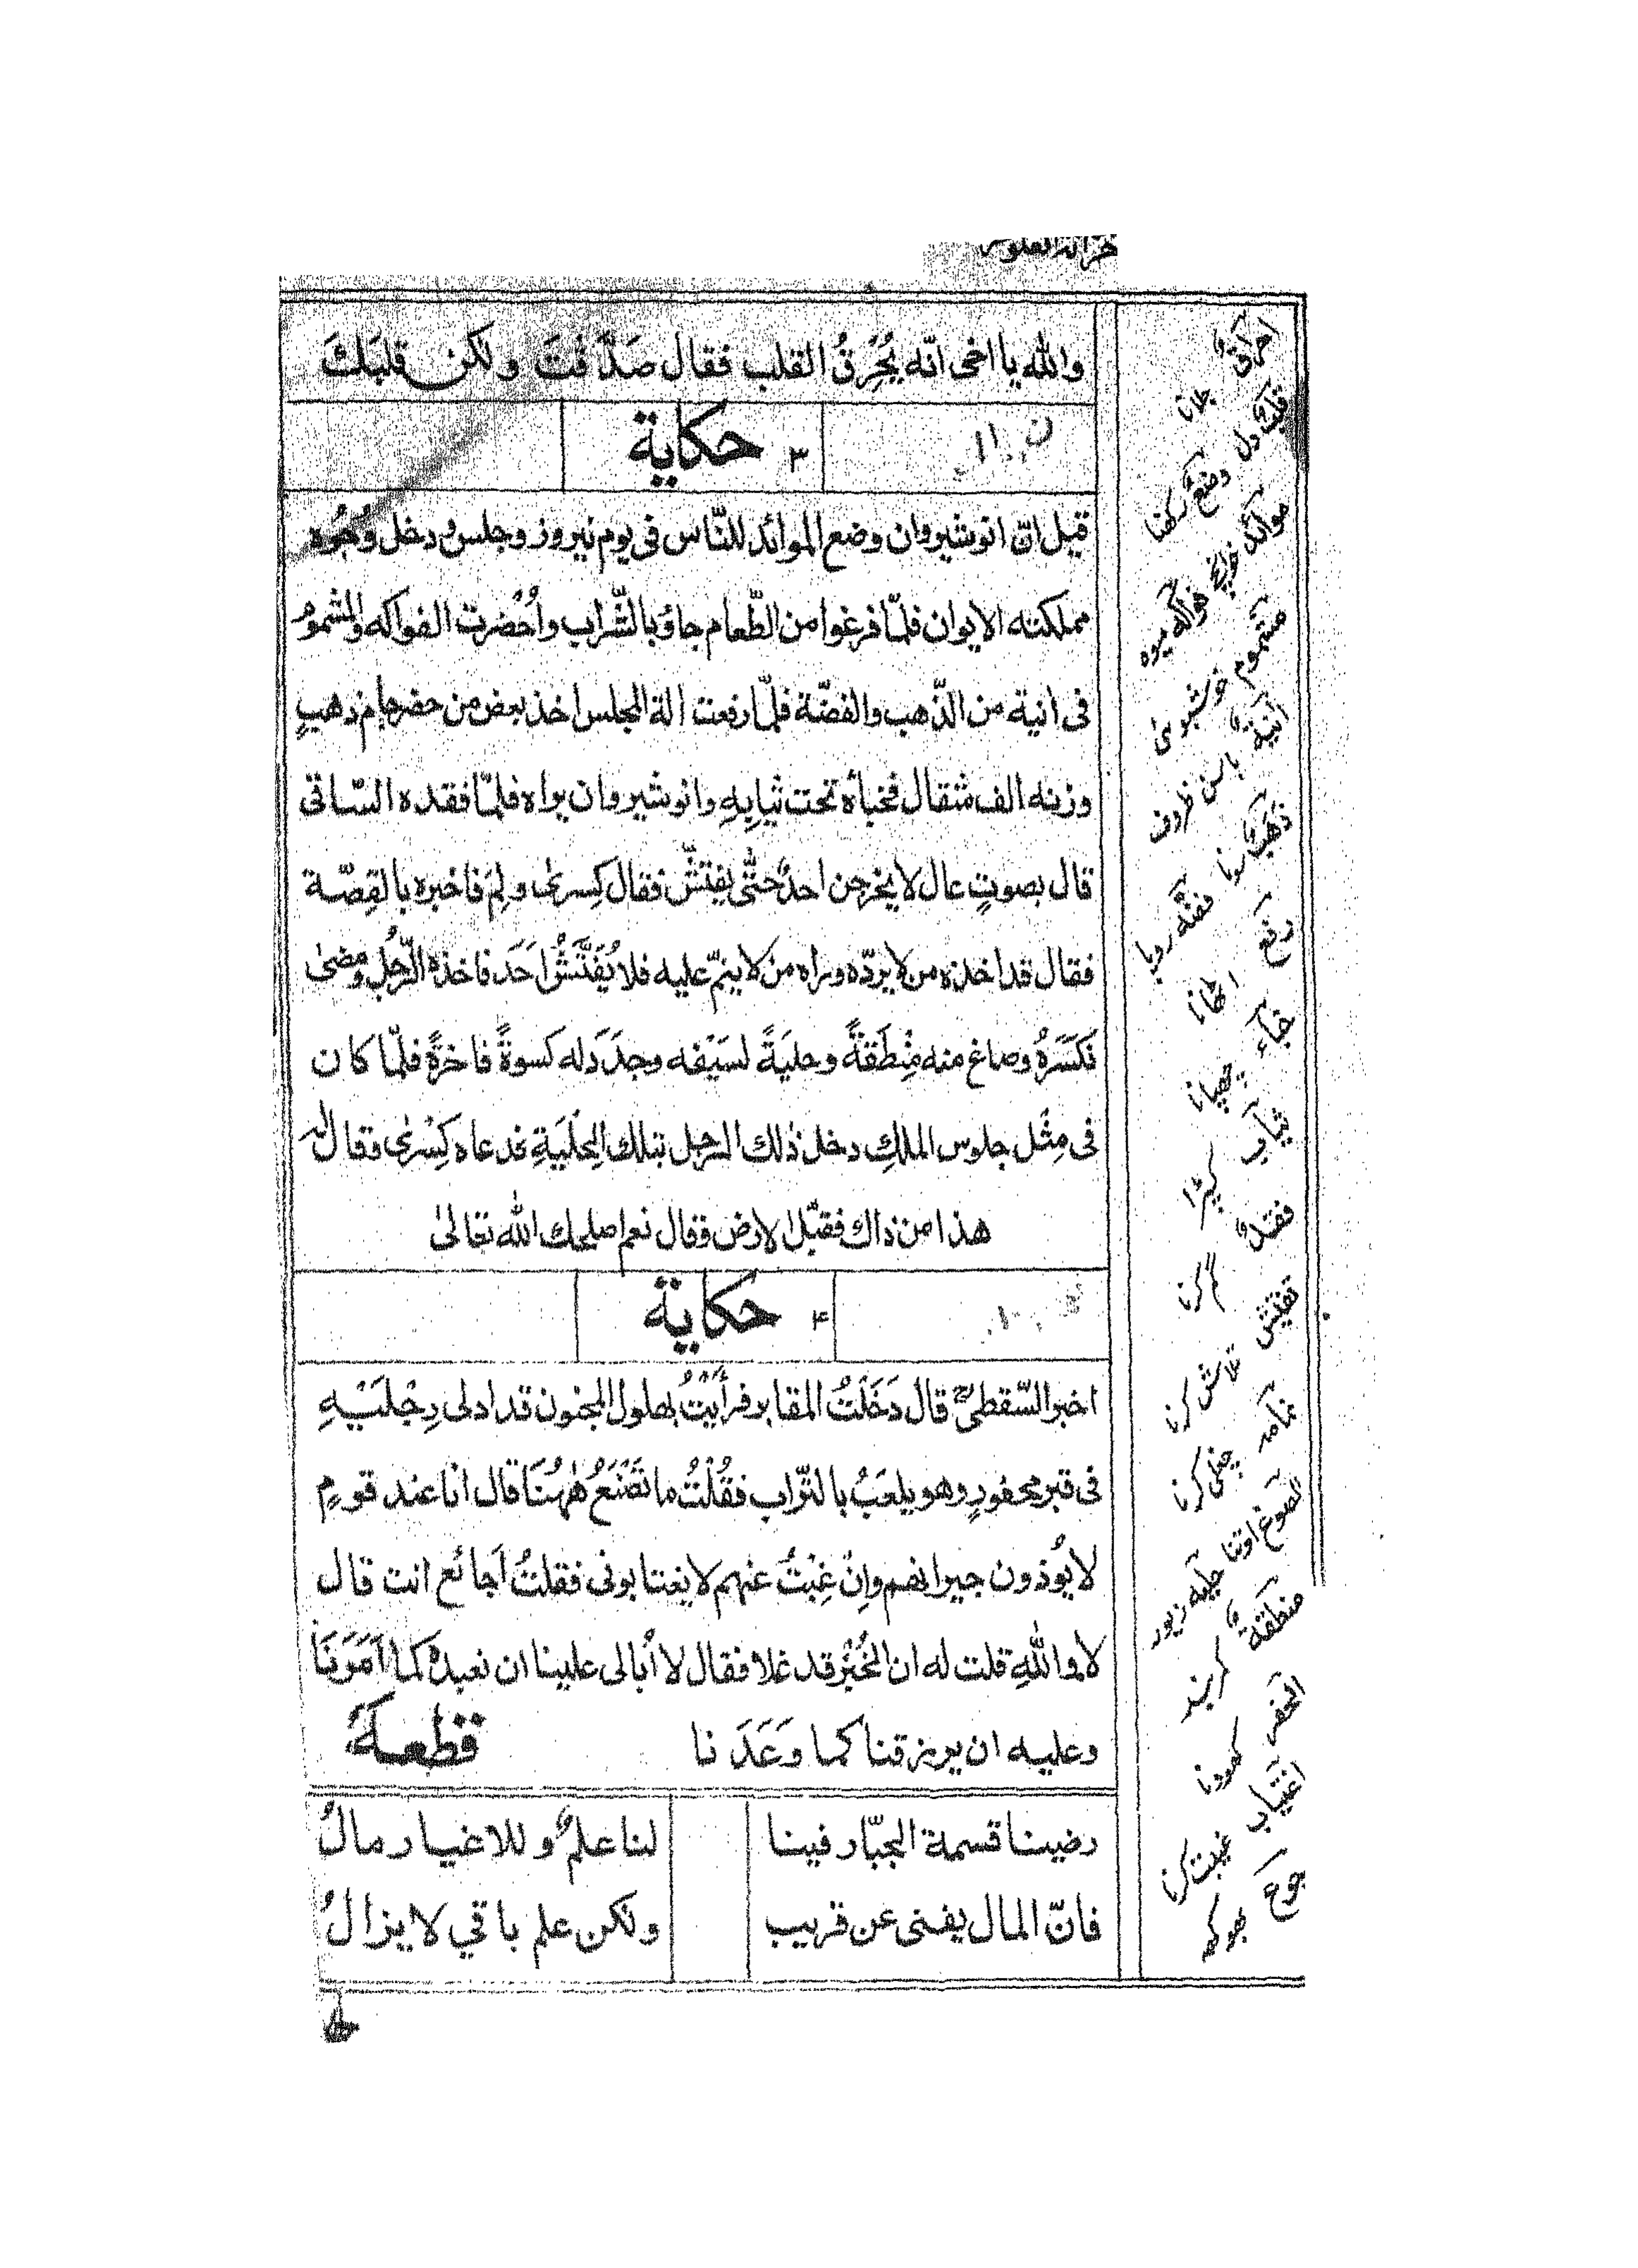 والله يا اخى انّه يُحْرِقُ القلب فقال صَدَّقْتَ ولكن قلبَكَ
٣ حكاية
قيل انّ انوشيروان وضع الموائد للنّاس فى يوم نيروز وجلس و دخل وُجُوه
مملكته الايوان فلمّا فرغوا من الطّعام جاؤ بالشّراب واُحْضرت الفواكه والمشموم
فى انية من الذّهب والفضّة فلمّا رفعت الة المجلس اخذ بعض من حضر جام ذهبٍ
وزنه الف مثقال فخبأه تحت ثيابِهِ وانوشيروان يراه فلمّا فقده السّاقى
قال بصوتٍ عال لا يخرجن احدٌ حتّى يفتشّ فقال كِسرى ولِمَ فاخبره بالقِصّة
فقال قد اخذه من لا يردّه وراه من لا ينمّ عليه فلا يُفَتَّشُ احَد فاخذه الرّجل ومضى
فكَسَرَهُ وصاغ منه مِنْطَقَةً وحليَةً لسَيْفه وجدَدَ له كسوةً فاخرةً فلمّا كان
فى مِثْل جلوس الملكِ دخل ذٰلك الرجل بتلك الحِلْيَةِ فدعاه كِسْرى وقال له
هذا من ذاك فقبّل الارض وقال نعم اصلحك الله تعالىٰ
۴ حكاية
اخبر السّقطى قال دَخَلْتُ المقابر فرأيتُ بهلول المجنون قد ادلى رِجْلَيْهِ
فى قبر محفورٍ وهو يلعَبُ بالتّراب فقُلْتُ ما تَصْنَعُ هٰهُنَا قال انا عند قومٍ
لا يُوذون جيرانهم وإنْ غِبْتُ عنهم لا يغتابونى فقلتُ اَجائع انت قال
لا والله قلت له ان الخُبْزَ قد غلا فقال لا اُبالى علينا ان نعبدهُ كما اَمَرَنَا
وعليه ان يرزقنا كما وَعَدَنا قطعة
رضينا قسمة الجبّار فينا لنا علمٌ و للاغيار مالُ
فانّ المال يفنى عن قريب ولكن علم باقي لا يزالُ
احراق جلانا
قلب دل
وضع ركهنا
موائد
فواكه ميوه
مشموم خوشبوئى
آنية باسن ظروف
ذهب سونا
فضّه روپا
رفع اٹهانا
خباء چهپانا
ثياب كپڑا
فقد گم كرنا
تفتيش تلاش كرنا
چغلى كرنا
حليه زيور
منطقة كمربند
كهودنا
اغتياب غيبت كرنا
جوع بهوكهـ